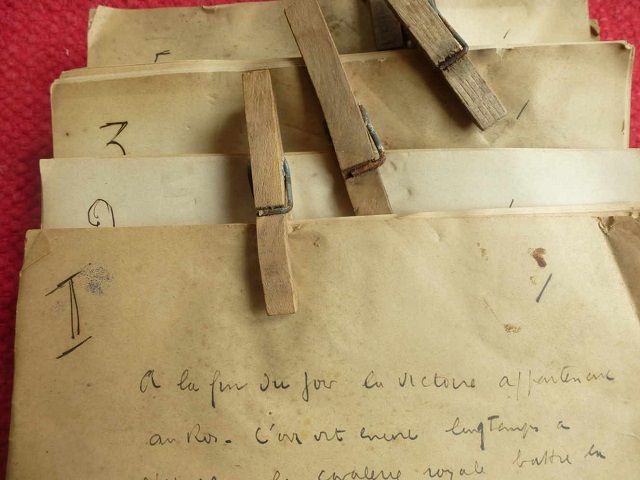 5
3
2
I
A la fin du jour la victoire appartenait
au Roi. L'on vit encore longtemps a
la cavalerie royale battre en